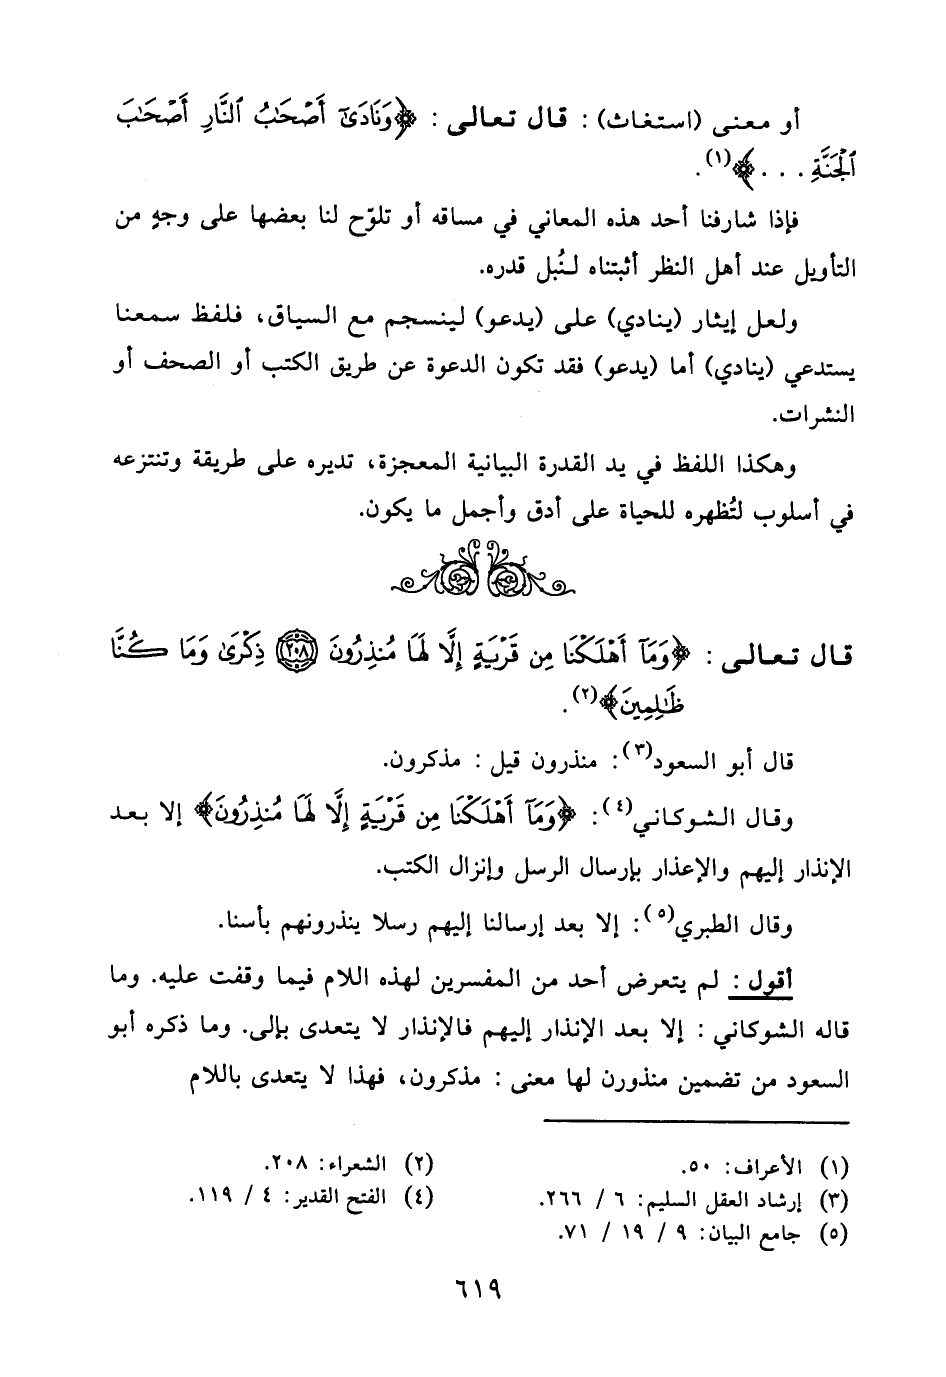 أو معنى (استغاث) : قال تعالى : ﴿وَنَادَىٰٓ أَصْحَٰبُ ٱلنَّارِ أَصْحَٰبَ
ٱلْجَنَّةِ . . . ﴾(١).
فإذا شارفنا أحد هذه المعاني في مساقه أو تلوّح لنا بعضها على وجهٍ من
التأويل عند أهل النظر أثبتناه لنُبل قدره.
ولعل إيثار (ينادي) على (يدعو) لينسجم مع السياق، فلفظ سمعنا
يستدعي (ينادي) أما (يدعو) فقد تكون الدعوة عن طريق الكتب أو الصحف أو
النشرات.
وهكذا اللفظ في يد القدرة البيانية المعجزة، تديره على طريقة وتنتزعه
في أسلوب لتُظهره للحياة على أدق وأجمل ما يكون.
قال تعالى : ﴿وَمَآ أَهْلَكْنَا مِن قَرْيَةٍ إِلَّا لَهَا مُنذِرُونَ ٢٠٨ ذِكْرَىٰ وَمَا كُنَّا
ظَٰلِمِينَ﴾(٢).
قال أبو السعود(٣): منذرون قيل : مذكرون.
وقال الشوكاني(٤): ﴿وَمَآ أَهْلَكْنَا مِن قَرْيَةٍ إِلَّا لَهَا مُنذِرُونَ﴾ إلا بعد
الإنذار إليهم والإعذار بإرسال الرسل وإنزال الكتب.
وقال الطبري(٥): إلا بعد إرسالنا إليهم رسلا ينذرونهم بأسنا.
أقول : لم يتعرض أحد من المفسرين لهذه اللام فيما وقفت عليه. وما
قاله الشوكاني : إلا بعد الإنذار إليهم فالإنذار لا يتعدى بإلى. وما ذكره أبو
السعود من تضمين منذورن لها معنى : مذكرون، فهذا لا يتعدى باللام
(١) الأعراف: ٥٠.
(٢) الشعراء: ٢٠٨.
(٣) إرشاد العقل السليم: ٦ / ٢٦٦.
(٤) الفتح القدير: ٤ / ١١٩.
(٥) جامع البيان: ٩ / ١٩ / ٧١.
٦١٩